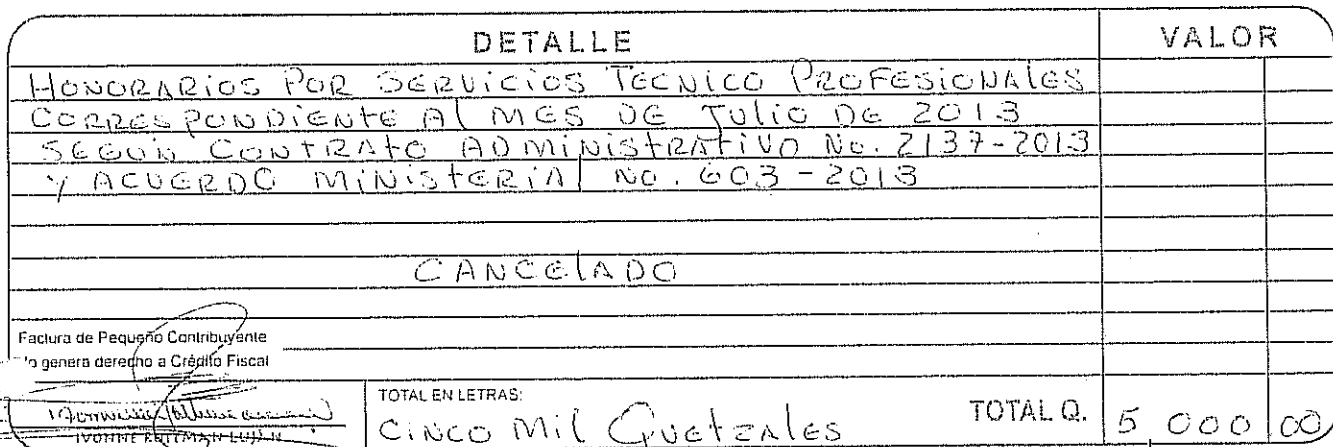 DETALLE VALOR
HONORARIOS POR SERVICIOS TECNICO PROFESIONALES
CORRESPONDIENTE AL MES DE JULIO DE 2013
SEGUN CONTRATO ADMINISTRATIVO No. 2137-2013
Y ACUERDO MINISTERIAL No. 603-2013
CANCELADO
Factura de Pequeño Contribuyente
genera derecho a Crédito Fiscal
TOTAL EN LETRAS:
CINCO Mil Quetzales TOTAL Q. 5 000 00
IVONNE